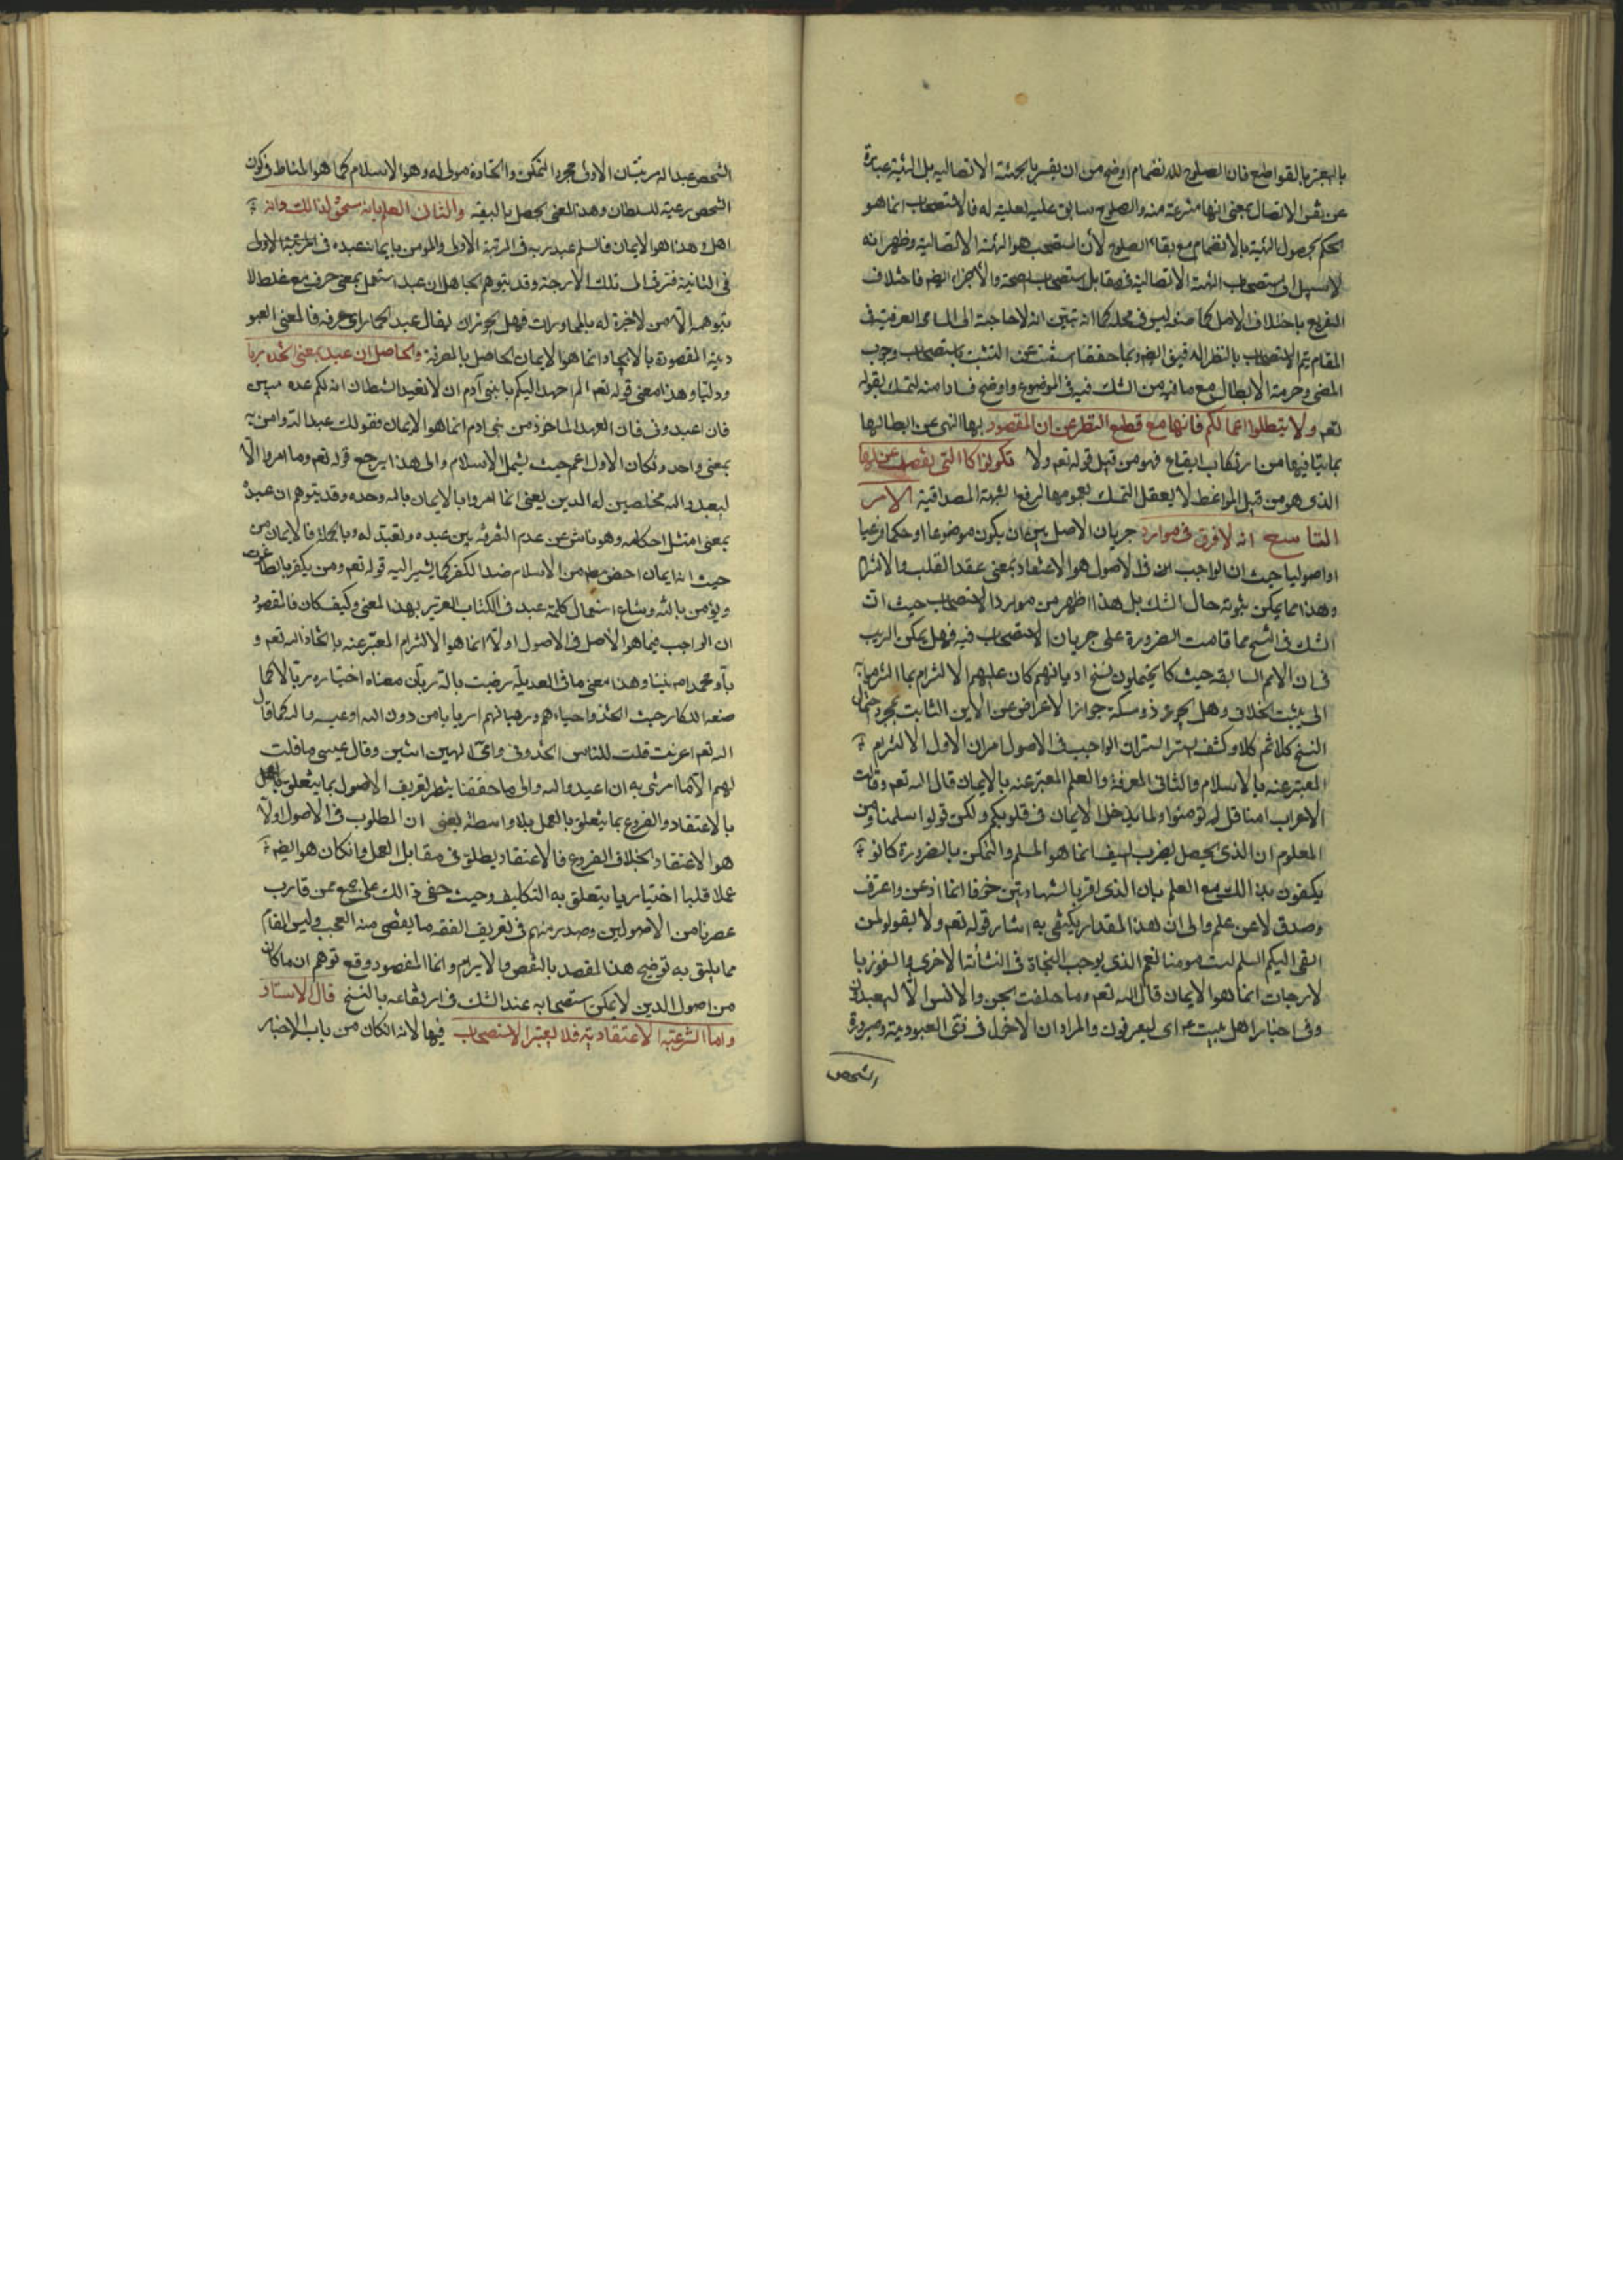 بالهجر بالقواطع فان الصلوح للانضمام اوضح من ان يفسر بالهيئة الاتصالية بل الهيئة عبارة
عن نفس الاتصال بمعنى انها منتزعة منه والصلوح سابق عليه لعليته له فالاستصحاب انما هو
الحكم بحصول الهيئة بالانضمام مع بقاء الصلوح لأن المستصحب هو الهيئة الاتصالية وظهر انه
لا سبيل الى استصحاب الهيئة الاتصالية في مقابل استصحاب الصحة والأجزاء ايضم فاختلاف
التفريع باختلاف الاصل كما صنعه ليس في محله كما انه تبين انه لا حاجة الى المسامحة العرفية في
المقام يتم الاستصحاب بالنظر الدقيق ايضم وبما حققنا استغنيت عن التشبث باستصحاب وجوب
المضي وحرمة الابطال مع ما فيه من الشك فيه في الموضوع واوضح فسادا منه التمسك بقوله
تعم ولا تبطلوا اعمالكم فانها مع قطع النظر عن ان المقصود بها النهي عن ابطالها
بما ينافيها من ارتكاب ايقاع فهو من قبيل قوله تعم ولا تكونوا كالتي نقضت غزلها
الذي هو من قبيل المواعظ لا يعقل التمسك بعمومها لرفع الشبهة المصداقية الامر
التاسع انه لا فرق في موارد جريان الاصل بين ان يكون موضوعا او حكما فرعيا
او اصوليا حيث ان الواجب في الاصول هو الاعتقاد بمعنى عقد القلب والالتزام
وهذا انما يمكن ثبوته حال الشك بل هذا اظهر من موارد الاستصحاب حيث ان
الشك في النسخ مما قامت الضرورة على جريان الاستصحاب فيه فهل يمكن الريب
في ان الامم السابقة حيث كانوا يحتملون نسخ اديانهم كان عليهم الالتزام بما التزموا به
الى يثبت الخلاف وهل يجوز ذو مسكة جواز الاعراض عن الدين الثابت بمجرد احتمال
النسخ كلا ثم كلا وكشف الستر ان الواجب في الاصول امران الاول الالتزام
المعتبر عنه بالاسلام والثاني المعرفة والعلم المعبر عنه بالايمان قال الله تعم وقالت
الاعراب امنا قل لم تؤمنوا ولما يدخل الايمان في قلوبكم ولكن قولوا اسلمنا ومن
المعلوم ان الذي يحصل بضرب السيف انما هو المسلم والتمكن بالضرورة كانوا
يكتفون بذلك مع العلم بان الذي اقر بالشهادتين خوفا انما اذعن واعترف
وصدق لا عن علم والى ان هذا المقدار يكتفى به اشار قوله تعم ولا تقولوا لمن
القى اليكم السلم لست مومنا نعم الذي يوجب النجاة في النشأة الاخرى والفوز با
لدرجات انما هو الايمان قال الله تعم وما خلقت الجن والانس الا ليعبدون
وفي اخبار اهل بيت ع اي ليعرفون والمراد ان الدخول في زي العبودية وصيرورة
الشخص
الشخص عبدا له مرتبتان الاولى مجرد التمكين واتخاذه مولى له وهو الاسلام كما هو المناط في كون
الشخص رعية للسلطان وهذا المعنى يحصل بالبيعة والثاني العلم بانه مستحق لذلك وانه
اهل هذا هو الايمان فالمسلم عبد ربه في المرتبة الاولى والمومن بايمانه عبده في المرتبة الاولى
في الثانية فترقى الى تلك الدرجة وقد يتوهم الجاهل ان عبد استعمل بمعنى عرف مع غلط لا
يتوهمه الا من لا خبرة له بالمحاورات فهل يجوز ان يقال عبد الحمار اي عرفه فالمعنى العبو
دية المقصودة بالايجاد انما هو الايمان الحاصل بالمعرفة والحاصل ان عبد بمعنى اتخذه ربا
ودليلا وهذا معنى قوله تعم الم اعهد اليكم يا بني آدم ان لا تعبدوا الشيطان انه لكم عدو مبين
فان اعبدوني فان العهد الماخوذ من بني ادم انما هو الايمان فقولك عبد الله وامن به
بمعنى واحد وان كان الاول اعم حيث يشمل الاسلام والى هذا يرجع قوله تعم وما امروا الا
ليعبدوا الله مخلصين له الدين يعني انما امروا بالايمان بالله وحده وقد يتوهم ان عبده
بمعنى امتثل احكامه وهو ناش عن عدم التفرقة بين عبده وتعبد له وبالجملة فالايمان من
حيث انه ايمان اخص من الاسلام ضد الكفر كما يشير اليه قوله تعم ومن يكفر بالطاغوت
ويؤمن بالله وشاع استعمال كلمة عبد في الكتاب العزيز بهذا المعنى وكيف كان فالمقصود
ان الواجب فيما هو الاصل في الاصول اولا انما هو الالتزام المعبر عنه باتخاذ الله تعم و
با ومحمد ص نبيا وهذا معنى ما في العديلة رضيت بالله ربا فان معناه اختياره ربا لا كما
صنعه الكفار حيث اتخذوا احبارهم ورهبانهم اربابا من دون الله او عيسى والله كما قال
الله تعم اءنت قلت للناس اتخذوني وامي الهين اثنين وقال عيسى ما قلت
لهم الا ما امرتني به ان اعبدوا الله والى ما حققنا ينظر تعريف الاصول بما يتعلق بالعمل
بالاعتقاد والفروع بما يتعلق بالعمل بلا واسطة يعني ان المطلوب في الاصول اولا
هو الاعتقاد بخلاف الفروع فالاعتقاد يطلق في مقابل العمل وان كان هو ايضم
عملا قلبيا اختياريا يتعلق به التكليف وحيث خفي ذلك على جمع ممن قارب
عصرنا من الاصوليين وصدر منهم في تعريف الفقه ما يقضى منه العجب وليس المقام
مما يليق به توضيح هذا المقصد بالنقض والابرام وانما المقصود وقع توهم ان ما كان
من اصول الدين لا يمكن استصحابه عند الشك في ارتفاعه بالنسخ قال الاستاد
واما الشرعية الاعتقادية فلا يعتبر الاستصحاب فيها لانه ان كان من باب الاخبار